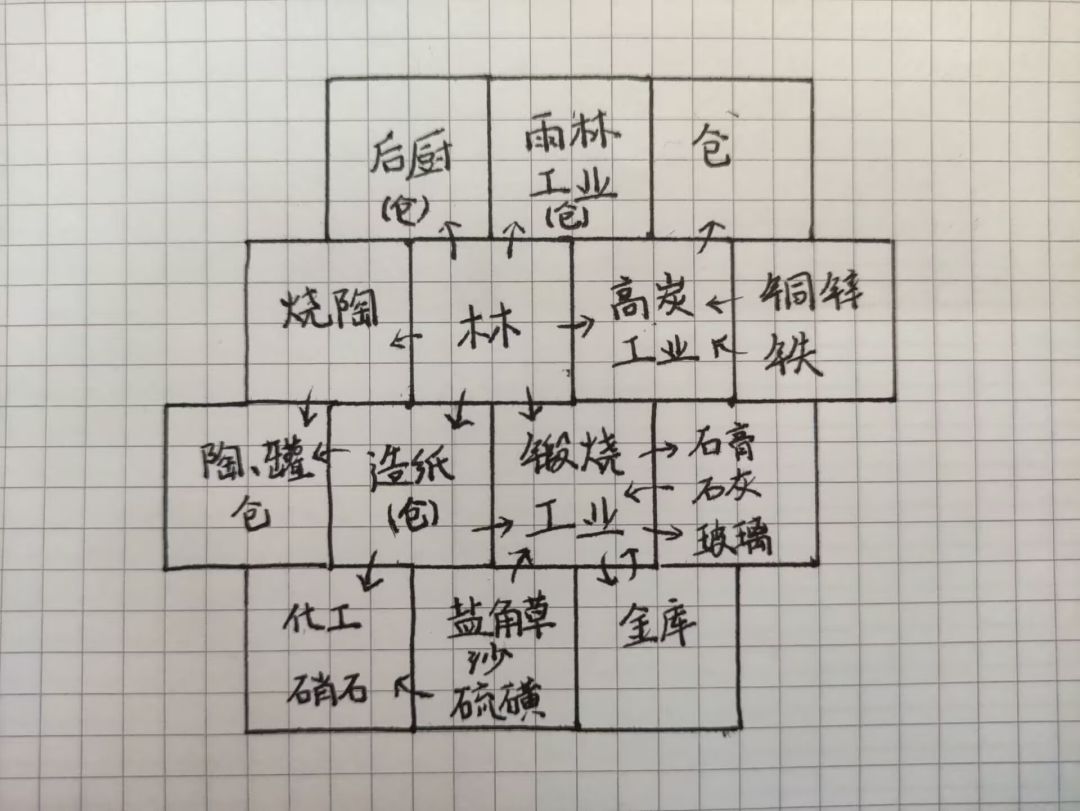 后厨
(仓)
雨林
工业
(仓)
仓
烧陶
林
高炭
工业
铜锌
铁
陶、罐
仓
造纸
(仓)
锻烧
工业
石膏
石灰
玻璃
化工
硝石
盐角草
沙
硫磺
金库